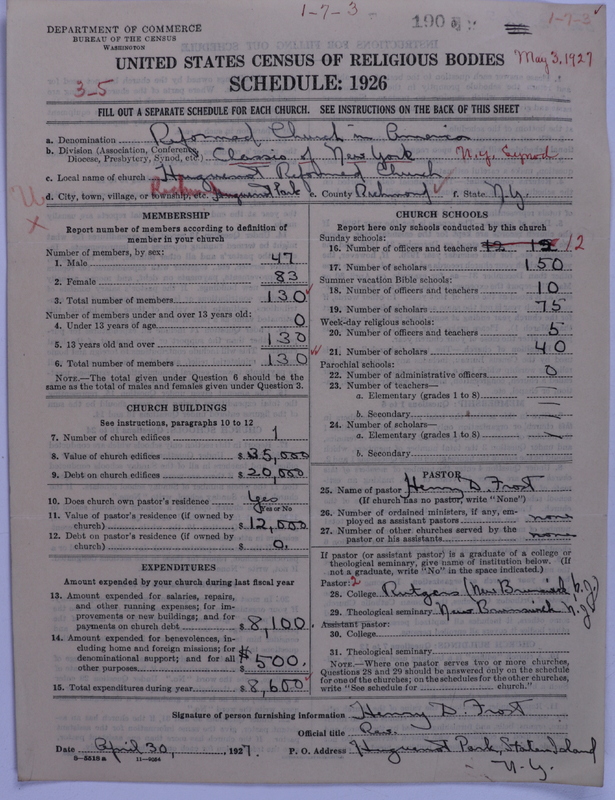 1-7-3-
190
1-7-3
DEPARTMENT OF COMMERCE
BUREAU OF THE CENSUS
WASHINGTON
UNITED STATES CENSUS OF RELIGIOUS BODIES
May 3, 1927
SCHEDULE: 1926
3-5
FILL OUT A SEPARATE SCHEDULE FOR EACH CHURCH. SEE INSTRUCTIONS ON THE BACK OF THIS SHEET
a. Denomination Reformed Church in America
b. Division (Association, Conference, Diocese, Presbytery, Synod, etc.) Classis of New York N.Y. Synod
c. Local name of church Huguenot Reformed Church
d. City, town, village, or township, etc. Huguenot Park e. County Richmond f. State N.Y.
MEMBERSHIP
Report number of members according to definition of
member in your church
Number of members, by sex:
1. Male 47
2. Female 83
3. Total number of members 130
Number of members under and over 13 years old:
4. Under 13 years of age 0
5. 13 years old and over 130
6. Total number of members 130
NOTE.—The total given under Question 6 should be the
same as the total of males and females given under Question 3.
CHURCH BUILDINGS
See instructions, paragraphs 10 to 12
7. Number of church edifices 1
8. Value of church edifices $35,000
9. Debt on church edifices $20,000
10. Does church own pastor's residence Yes
(Yes or No)
11. Value of pastor's residence (if owned by
church) $12,000
12. Debt on pastor's residence (if owned by
church) $0.
EXPENDITURES
Amount expended by your church during last fiscal year
13. Amount expended for salaries, repairs,
and other running expenses; for im-
provements or new buildings; and for
payments on church debt $8,100.
14. Amount expended for benevolences, in-
cluding home and foreign missions; for
denominational support; and for all
other purposes $500.
15. Total expenditures during year $8,600
CHURCH SCHOOLS
Report here only schools conducted by this church
Sunday schools:
16. Number of officers and teachers 12 12 12
17. Number of scholars 150
Summer vacation Bible schools:
18. Number of officers and teachers 10
19. Number of scholars 75
Week-day religious schools:
20. Number of officers and teachers 5
21. Number of scholars 40
Parochial schools:
22. Number of administrative officers 0
23. Number of teachers—
a. Elementary (grades 1 to 8)
b. Secondary
24. Number of scholars—
a. Elementary (grades 1 to 8)
b. Secondary
PASTOR
25. Name of pastor Henry D. Frost
(If church has no pastor, write "None")
26. Number of ordained ministers, if any, em-
ployed as assistant pastors none
27. Number of other churches served by the
pastor or his assistants none
If pastor (or assistant pastor) is a graduate of a college or
theological seminary, give name of institution below. (If
not a graduate, write "No" in the space indicated.)
Pastor: 2
28. College Rutgers (New Brunswick N.J.)
29. Theological seminary New Brunswick N.J
Assistant pastor:
30. College
31. Theological seminary
NOTE.—Where one pastor serves two or more churches,
Questions 28 and 29 should be answered only on the schedule
for one of the churches; on the schedules for the other churches,
write "See schedule for church."
Signature of person furnishing information Henry D. Frost
Official title Rev.
Date April 30, 1927. P. O. Address Huguenot Park, Staten Island
N.Y.
8—5518a 11—9024